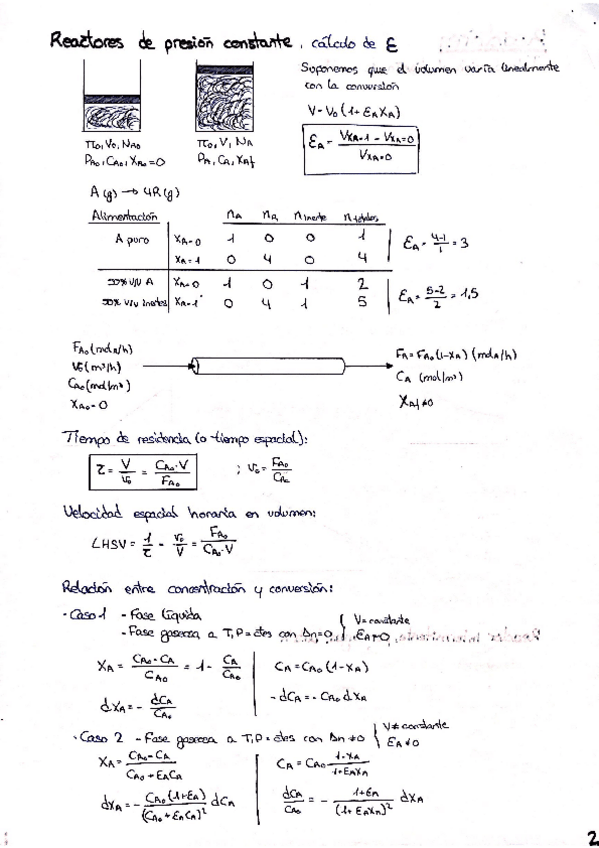 Reactores de presión constante, cálculo de ε
Suponemos que el volumen varía linealmente
con la conversión
V = V₀ (1+ε_A X_A)
ε_A = (V_{XA=1} - V_{XA=0}) / V_{XA=0}
π₀, V₀, N_{A0}
P_{A0}, C_{A0}, X_{A0} = 0
π₀, V, N_A
P_A, C_A, X_{Af}
A(g) → 4R(g)
Alimentación n_A n_R n_{inerte} n_{totales}
A puro X_A=0 1 0 0 1
X_A=1 0 4 0 4
ε_A = (4-1)/1 = 3
50% v/v A X_A=0 1 0 1 2
50% v/v inertes X_A=1 0 4 1 5
ε_A = (5-2)/2 = 1,5
F_{A0} (mol_A/h)
v₀ (m³/h)
C_{A0} (mol/m³)
X_{A0} = 0
F_A = F_{A0} (1-X_A) (mol_A/h)
C_A (mol/m³)
X_{Af} ≠ 0
Tiempo de residencia (o tiempo espacial):
τ = V/v₀ = C_{A0}·V / F_{A0} ; v₀ = F_{A0}/C_{A0}
Velocidad espacial horaria en volumen:
LHSV = 1/τ = v₀/V = F_{A0} / C_{A0}·V
Relación entre concentración y conversión:
· Caso 1 - Fase líquida
- Fase gaseosa a T, P = ctes con Δn=0
{ V = constante
ε_A = 0
X_A = (C_{A0} - C_A) / C_{A0} = 1 - C_A/C_{A0}
C_A = C_{A0} (1-X_A)
dX_A = - dC_A/C_{A0}
- dC_A = - C_{A0} dX_A
· Caso 2 - Fase gaseosa a T, P = ctes con Δn ≠ 0
{ V ≠ constante
ε_A ≠ 0
X_A = (C_{A0} - C_A) / (C_{A0} + ε_A C_A)
C_A = C_{A0} (1-X_A) / (1+ε_A X_A)
dX_A = - C_{A0} (1+ε_A) / (C_{A0} + ε_A C_A)² dC_A
dC_A/C_{A0} = - (1+ε_A) / (1+ε_A X_A)² dX_A
2